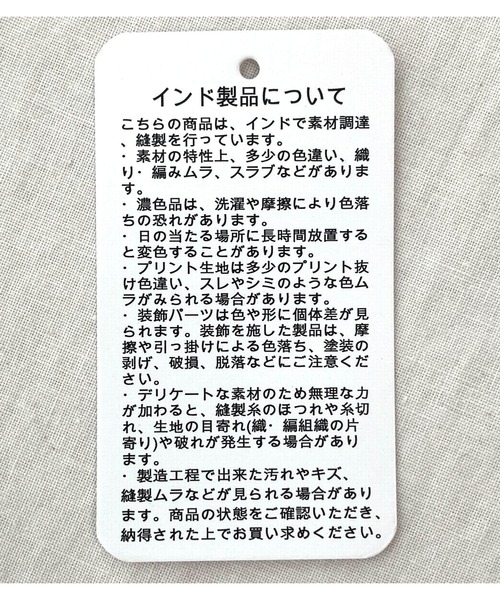 インド製品について
こちらの商品は、インドで素材調達
、縫製を行っています。
・素材の特性上、多少の色違い、織
り・編みムラ、スラブなどがありま
す。
・濃色品は、洗濯や摩擦により色落
ちの恐れがあります。
・日の当たる場所に長時間放置する
と変色することがあります。
・プリント生地は多少のプリント抜
け色違い、スレやシミのような色ム
ラがみられる場合があります。
・装飾パーツは色や形に個体差が見
られます。装飾を施した製品は、摩
擦や引っ掛けによる色落ち、塗装の
剥げ、破損、脱落などにご注意くだ
さい。
・デリケートな素材のため無理な力
が加わると、縫製糸のほつれや糸切
れ、生地の目寄れ(織・編組織の片
寄り)や破れが発生する場合があり
ます。
・製造工程で出来た汚れやキズ、
縫製ムラなどが見られる場合があり
ます。商品の状態をご確認いただき、
納得された上でお買い求めください。